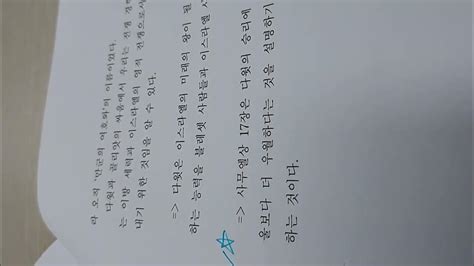 라 오직 '만군의 여호와'의 이름이었다.
다윗과 골리앗의 싸움에서 우리는 전쟁
는 이방 세력과 이스라엘의 영적 전쟁으로서
내기 위한 것임을 알 수 있다.
=> 다윗은 이스라엘의 미래의 왕이 될
하는 능력을 블레셋 사람들과 이스라엘
=> 사무엘상 17장은 다윗의 승리에
울보다 더 우월하다는 것을 설명하기
하는 것이다.